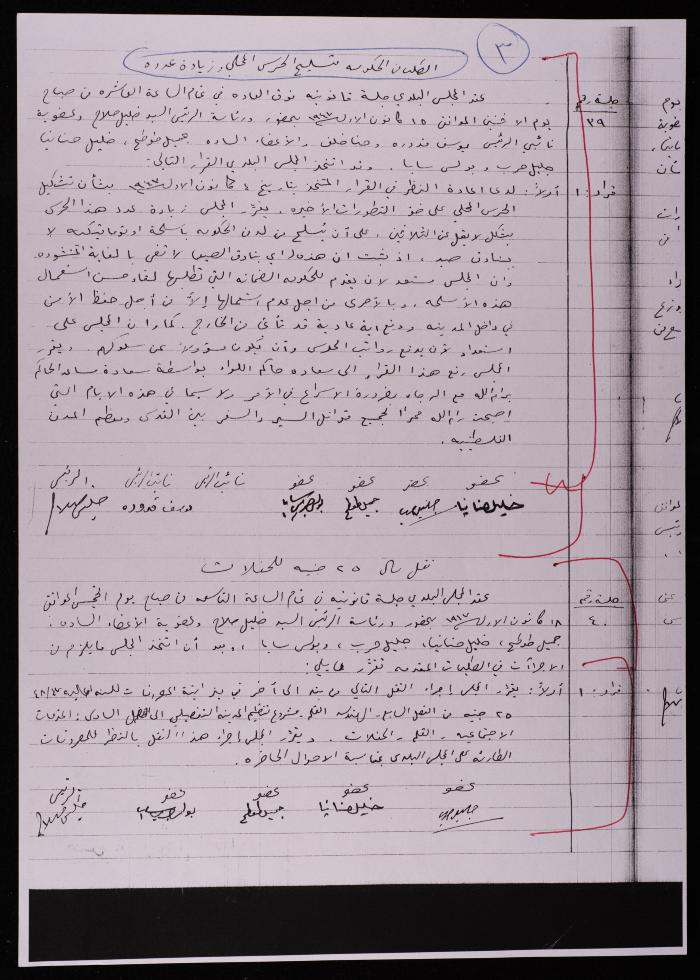 ٣
الطلب من الحكومه تسليح الحرس المحلي وزيادة عدده
جلسة رقم
٣٩
عقد المجلس البلدي جلسة قانونيه فوق العاده في تمام الساعة العاشره من صباح
يوم الاثنين الموافق ١٥ كانون الاول سنة ١٩٤٧ بحضور ورئاسة الرئيس السيد خليل صلاح وعضوية
نائبي الرئيس يوسف قدوره وحنا خلف والأعضاء الساده جميل طوطح، خليل حنانيا
جليل حرب و بولس سابا. وقد اتخذ المجلس البلدي القرار التالي:
قرار: ١
أولاً: لدى اعادة النظر في القرار المتخذ بتاريخ ٤ كانون الاول سنة ١٩٤٧ بشأن تشكيل
الحرس المحلي على ضوء التطورات الأخيره. يقرر المجلس زيادة عدد هذا الحرس
بشكل لا يقل عن الثلاثين. على أن يُسلح من لدن الحكومه بأسلحة اوتوماتيكيه لا
ببنادق صيد، اذ ثبت ان هذه اي بنادق الصيد لا تفي بالغاية المنشوده
وان المجلس مستعد لأن يقدم للحكومه الضمانه التي تطلبها لقاء حسن استعمال
هذه الأسلحه، وبالأحرى من اجل عدم استعمالها إلاّ من أجل حفظ الأمن
في داخل المدينه ودفع اية عادية قد تأتي من الخارج. كما وان المجلس على
استعداد لأن يدفع رواتب الحرس وأن يكون مسؤولاً عن سلوكهم. ويقرر
المجلس رفع هذا القرار الى سعادة حاكم اللواء بواسطة سعادة مساعد الحاكم
برام الله مع الرجاء بضرورة الاسراع في الأمر ولا سيما في هذه الايام التي
اصبحت رام الله ممراً لجميع قوافل السير والسفر بين القدس ومعظم المدن
الفلسطينيه.
عضو عضو عضو عضو نائب الرئيس نائب الرئيس الرئيس
خليل حنانيا جليل حرب جميل طوطح بولس سابا يوسف قدوره خليل صلاح
نقل مال ٢٥ جنيه للحفلات
جلسة رقم
٤٠
عقد المجلس البلدي جلسة قانونيه في تمام الساعة التاسعه من صباح يوم الخميس الموافق
١٨ كانون الاول سنة ١٩٤٧ بحضور ورئاسة الرئيس السيد خليل صلاح وعضوية الأعضاء الساده:
جميل طوطح، خليل حنانيا، جليل حرب، وبولس سابا، وبعد أن اتخذ المجلس ما يلزم من
الاجراآت في الطلبات المقدمه تقرر ما يلي:
قرار: ١
أولاً: يقرر المجلس إجراء النقل التالي من بند الى آخر في ميزانية المصروفات للسنه الماليه ٤٧/٤٨
٢٥ جنيه من الفصل السابع. الهندسه القلم. مشروع تنظيم المدينة التفصيلي الى الفصل السادس: الخدمات
الاجتماعيه. القلم. الحفلات. ويقرر المجلس إجراء هذا النقل بالنظر للمصروفات
الطارئة على المجلس البلدي بمناسبة الاحوال الحاضره.
عضو عضو عضو عضو الرئيس
جليل حرب خليل حنانيا جميل طوطح بولس سابا خليل صلاح